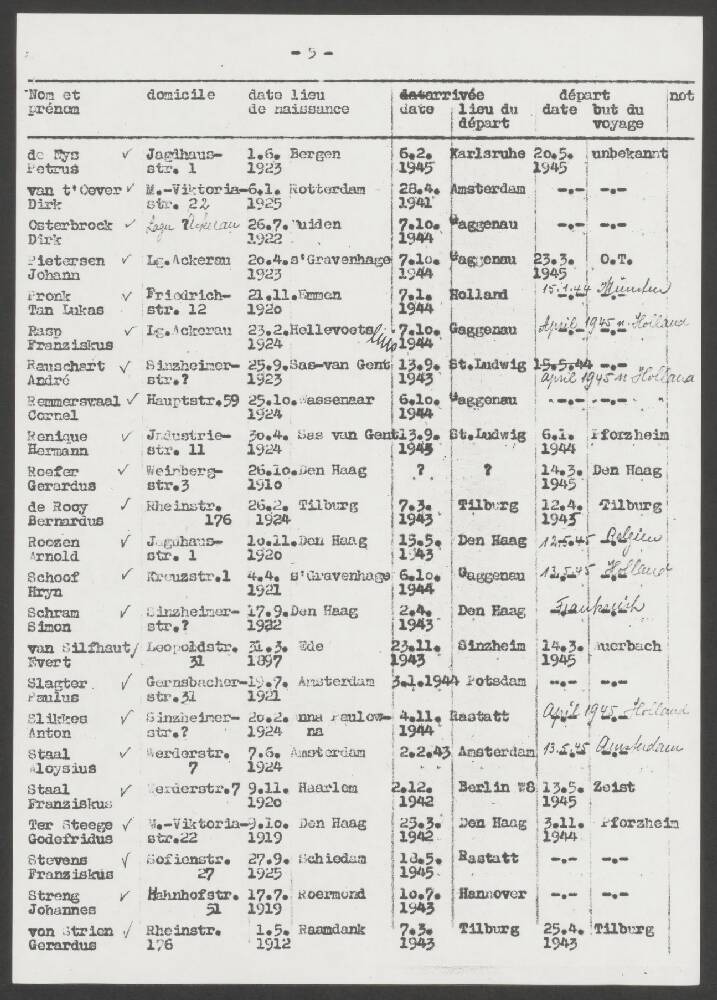 - 5 -
Nom et domicile date lieu datarrivée départ not
prénom de naissance date lieu du date but du
départ voyage
de Nys ✓ Jagdhaus- 1.6. Bergen 6.2. Karlsruhe 20.5. unbekannt
Petrus str. 1 1923 1945 1945
van t'Oever ✓ M.-Viktoria- 6.1. Rotterdam 28.4. Amsterdam -.- -.-
Dirk str. 22 1925 1941
Osterbrock ✓ 26.7. uiden 7.10. Gaggenau -.- -.-
Dirk 1922 1944
Pietersen ✓ Lg.Ackerau 20.4. s'Gravenhage 7.10. Gaggenau 23.3. O.T.
Johann 1923 1944 1945
Pronk ✓ Friedrich- 21.11. Emmen 7.1. Holland 15.1.44 Münster
Tan Lukas str. 12 1920 1944
Rasp ✓ Lg.Ackerau 23.2. Hellevoets 7.10. Gaggenau April 1945 n. Holland
Franziskus 1924 1944
Rauschart ✓ Sinzheimer- 25.9. Sas-van Gent 13.9. St.Ludwig 15.5.44 -.-
André str.? 1923 1943 April 1945 n Holland
Remmerswaal ✓ Hauptstr.59 25.10. Wassenaar 6.10. Gaggenau -.- -.-
Cornel 1924 1944
Renique ✓ Industrie- 30.4. Sas van Gent 13.9. St.Ludwig 6.1. Pforzheim
Hermann str. 11 1924 1943 1944
Roefer ✓ Weinberg- 26.10. Den Haag ? ? 14.3. Den Haag
Gerardus str.3 1910 1945
de Rooy ✓ Rheinstr. 26.2. Tilburg 7.3. Tilburg 12.4. Tilburg
Bernardus 176 1924 1943 1943
Roozen ✓ Jagdhaus- 10.11. Den Haag 15.5. Den Haag 12.5.45 Belgien
Arnold str. 1 1920 1943
Schoof ✓ Kreuzstr.1 4.4. s'Gravenhage 6.10. Gaggenau 13.5.45 Holland
Hryn 1921 1944
Schram ✓ Sinzheimer- 17.9. Den Haag 2.4. Den Haag Frankreich
Simon str.? 1922 1943
van Silfhaut ✓ Leopoldstr. 31.3. Ede 23.11. Sinzheim 14.3. Auerbach
Evert 31 1897 1943 1945
Slagter ✓ Gernsbacher- 19.7. Amsterdam 3.1.1944 Potsdam -.- -.-
Paulus str.31 1921
Slikkes ✓ Sinzheimer- 20.2. nna Paulow- 4.11. Rastatt April 1945 Holland
Anton str.? 1924 na 1944
Staal ✓ Werderstr. 7.6. Amsterdam 2.2.43 Amsterdam 13.5.45 Amsterdam
Aloysius 7 1924
Staal ✓ Werderstr.7 9.11. Haarlem 2.12. Berlin W8 13.5. Zeist
Franziskus 1920 1942 1945
Ter Steege ✓ M.-Viktoria- 9.10. Den Haag 25.3. Den Haag 3.11. Pforzheim
Godefridus str.22 1919 1942 1944
Stevens ✓ Sofienstr. 27.9. Schiedam 18.5. Rastatt -.- -.-
Franziskus 27 1925 1945
Streng ✓ Hahnhofstr. 17.7. Roermond 10.7. Hannover -.- -.-
Johannes 51 1919 1943
von Strien ✓ Rheinstr. 1.5. Raamdank 7.3. Tilburg 25.4. Tilburg
Gerardus 176 1912 1943 1943